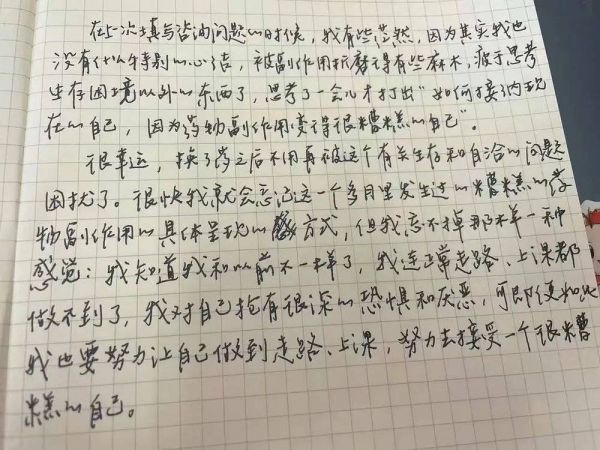 在上一次填写咨询问题的时候，我有些茫然，因为其实我也
没有什么特别的心结，被副作用折磨得有些麻木，疲于思考
生存困境以外的东西了，思考了一会儿才打出“如何接纳现
在的自己，因为药物副作用变得很糟糕的自己”。
很幸运，换了药之后不用再被这个有关生存和自洽的问题
困扰了。很快我就会忘记这一个多月里发生过的糟糕的药
物副作用的具体呈现的方式，但我忘不掉那样一种
感觉：我知道我和以前不一样了，我连正常走路、上课都
做不到了，我对自己抱有很深的恐惧和厌恶，可即便如此
我也要努力让自己做到走路、上课，努力去接受一个很糟
糕的自己。